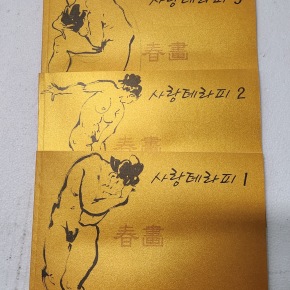 사랑테라피 3
春畫
사랑테라피 2
春畫
사랑테라피 1
春畫